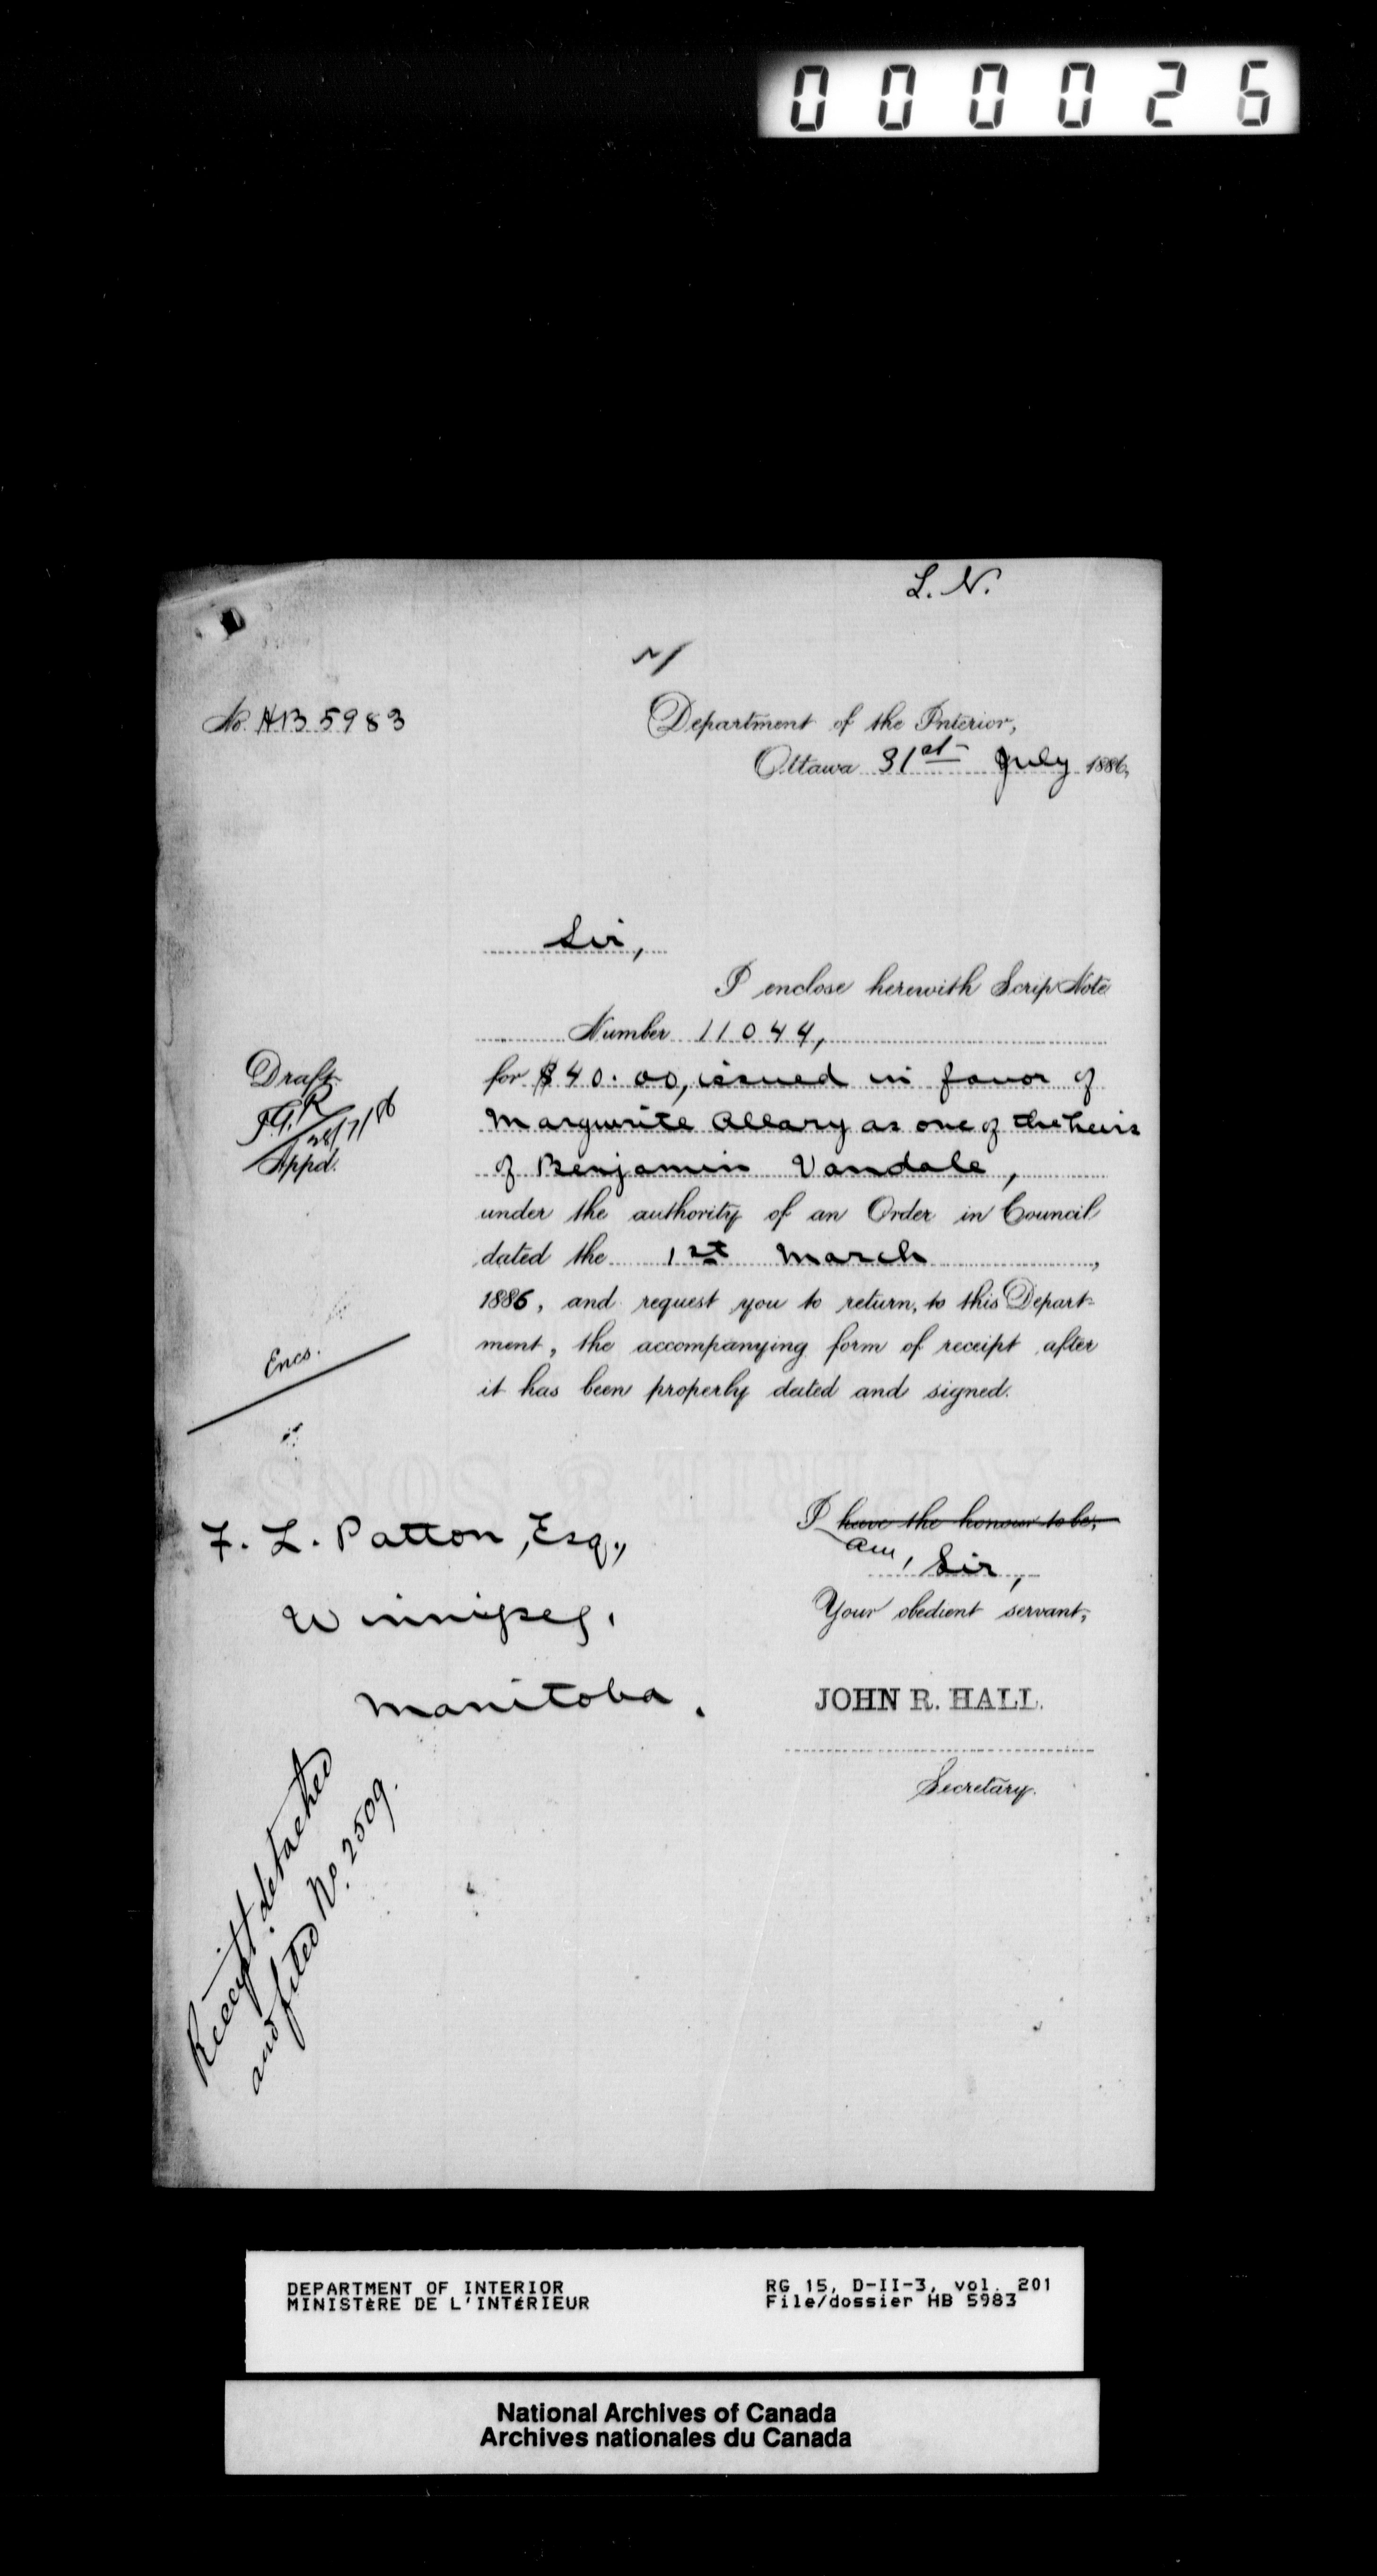 000026
L. N.
No. HB 5983
Department of the Interior,
Ottawa 31st July 1886,
Sir,
I enclose herewith Scrip Note
Number 11044,
for $40.00, issued in favor of
Marguerite Allary as one of the heirs
of Benjamin Vandale,
under the authority of an Order in Council
dated the 1st March,
1886, and request you to return, to this Depart-
ment, the accompanying form of receipt after
it has been properly dated and signed.
Draft
28/7/86
Appd.
Encs.
I have the honour to be,
am, Sir,
Your obedient servant,
JOHN R. HALL.
Secretary.
F. L. Patton, Esq.,
Winnipeg,
Manitoba.
Receipt detached
and filed No. 2509.
DEPARTMENT OF INTERIOR
MINISTÈRE DE L'INTÉRIEUR
RG 15, D-II-3, vol. 201
File/dossier HB 5983
National Archives of Canada
Archives nationales du Canada